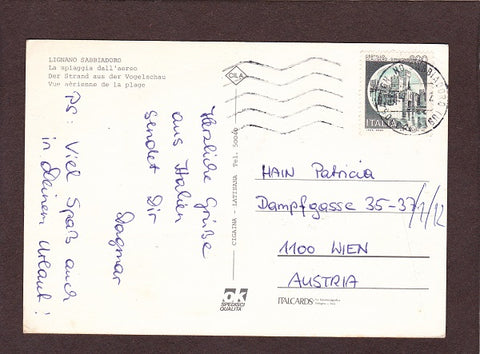 LIGNANO SABBIADORO
La spiaggia dall'aereo
Der Strand aus der Vogelschau
Vue aérienne de la plage
Herzliche Grüße
aus Italien
sendet Dir
Dagmar
PS: Viel Spaß auch
in deinem Urlaub!
CILA
CIGAINA - LATISANA Tel. 50040
ITALIA
HAIN Patricia
Dampfgasse 35-37/1/12
1100 WIEN
AUSTRIA
ok
SPEDISCI
QUALITÀ
ITALCARDS